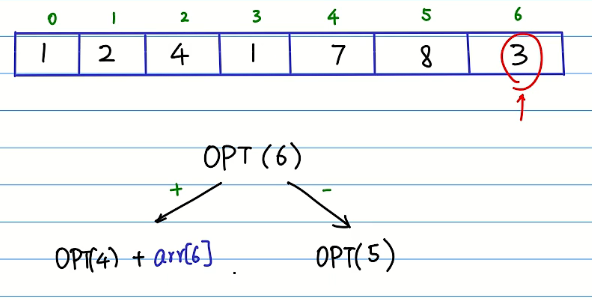 0 1 2 3 4 5 6
1 2 4 1 7 8 3
OPT(6)
+ -
OPT(4) + arr[6] . OPT(5)